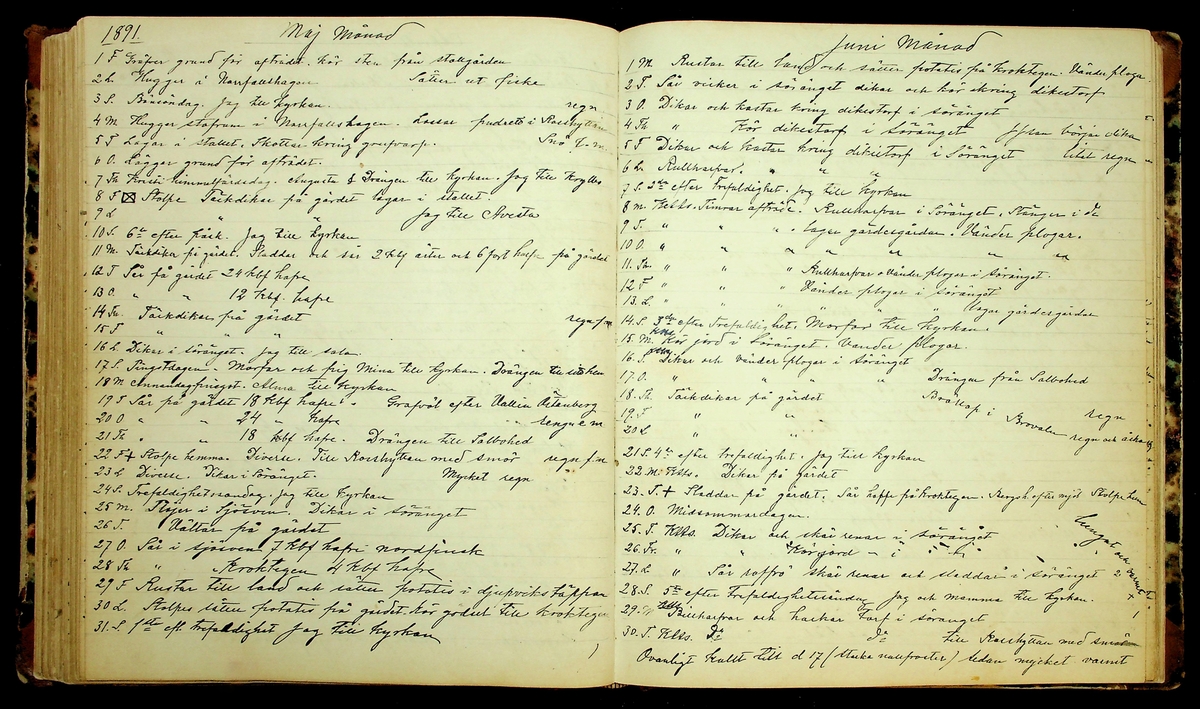 1891. Maj Månad
1 F Gräfver grund för afträdet. kör sten från stallgården
2 L Hugger i Norrfallshagen Sätter ut fiske
3 S. Bönsöndag. Jag till kyrkan. regn
4 M Hugger i Norrfallshagen. Lassar pudrett i Korshyttan
5 T Lagar i stallet. kring Snö f.m.
6 O. Lägger grund för afträdet.
7 Th Kristi himmelfärdsdag. Augusta & Drängen till kyrkan. Jag till
8 F Stolpe Täckdikar på gärdet lagar i stallet.
9 L " " Jag till Avesta
10 S. 6te efter påsk. Jag till kyrkan
11 M. Täckdikar på gärdet. Sladdar och sår 2 kbf ärter och 6 hafre på gärdet
12 T Sår på gärdet 24 kbf hafre
13 O. " " 12 kbf. hafre
14 Th. Täckdikar på gärdet regn f.m
15 F " " "
16 L Dikar i söränget. Jag till Sala.
17 S. Pingstdagen. Morfar och Mina till kyrkan. Drängen till
18 M Annandag pingst. Alma till kyrkan
19 T Sår på gärdet 18 kbf hafre. Grafvöl efter Österberg
20 O " " 24 " hafre regn e m
21 Th " " 18 kbf hafre. Drängen till Salbohed
22 F + Stolpe hemma. Diverse. Till Korshyttan med smör regn f.m
23 L Diverse. Dikar i Söränget. Mycket regn
24 S. Trefaldighetssöndag. Jag till kyrkan
25 M. Plöjer i Sjösven. Dikar i söränget
26 T. Vältar på gärdet
27 O. Sår i sjösven 7 kbf hafre nordfinsk
28 Th " Kroktegen 4 kbf hafre
29 F Rustar till land och sätter potatis i djupvikstäppan
30 L. Stolpes sätter potatis på gärdet kör gödsel till kroktegen
31. S 1sta eft. trefaldighet Jag till kyrkan
Juni Månad
1 M. Rustar till land och sätter potatis på Kroktegen. Vänder plogar
2 T. Sår vicker i söränget dikar och kör ikring dikestorf
3 O. Dikar och kastar kring dikestorf i söränget
4 Th " Kör dikestorf i Söränget börjar dika
5 F Dikar och kastar kring dikestorf i Söränget litet regn
6 L Rullharfvar. " " "
7 S. 2dra efter trefaldighet. Jag till kyrkan
8 M. Klbs. Timrar afträde. Rullharfvar i Söränget. Stänger i do
9 T. " " " Lagar gärdesgårdar. Vänder plogar.
10 O. " " " " " "
11. Th. " " " Rullharfvar o Vänder plogar i söränget.
12 F " " " Vänder plogar i söränget
13. L " " " " Lagar gärdesgårdar
14. S. 3dje efter trefaldighet. Morfar till kyrkan.
15. M. Kör jord i Söränget. Vänder plogar.
16. T. Dikar och vänder plogar i söränget
17 O. " " " " Drängen från Salbohed
18. Th. Täckdikar på gärdet Bröllop i Brovallen regn
19. F " " regn och åska
20 L " "
21 S. 4de efter trefaldighet. Jag till kyrkan
22. M. Klbs. Dikar på gärdet
23. T. + Sladdar på gärdet. Sår på kroktegen. efter mjöl Stolpe hem
24. O. Midsommardagen.
25. T. Klbs. Dikar och skär renar i söränget
26. Fr. " " Kör jord i " Lungnt och varmt
27. L " Sår skär renar och sladdar i söränget
28. S. 5te efter Trefaldighetsöndag Jag och mamma till kyrkan.
29. Billharfvar och hackar torf i söränget
30. T. Klbs. Do do till Korshyttan med smör
Ovanligt kallt till d 17 (starka nattfroster) sedan mycket varmt